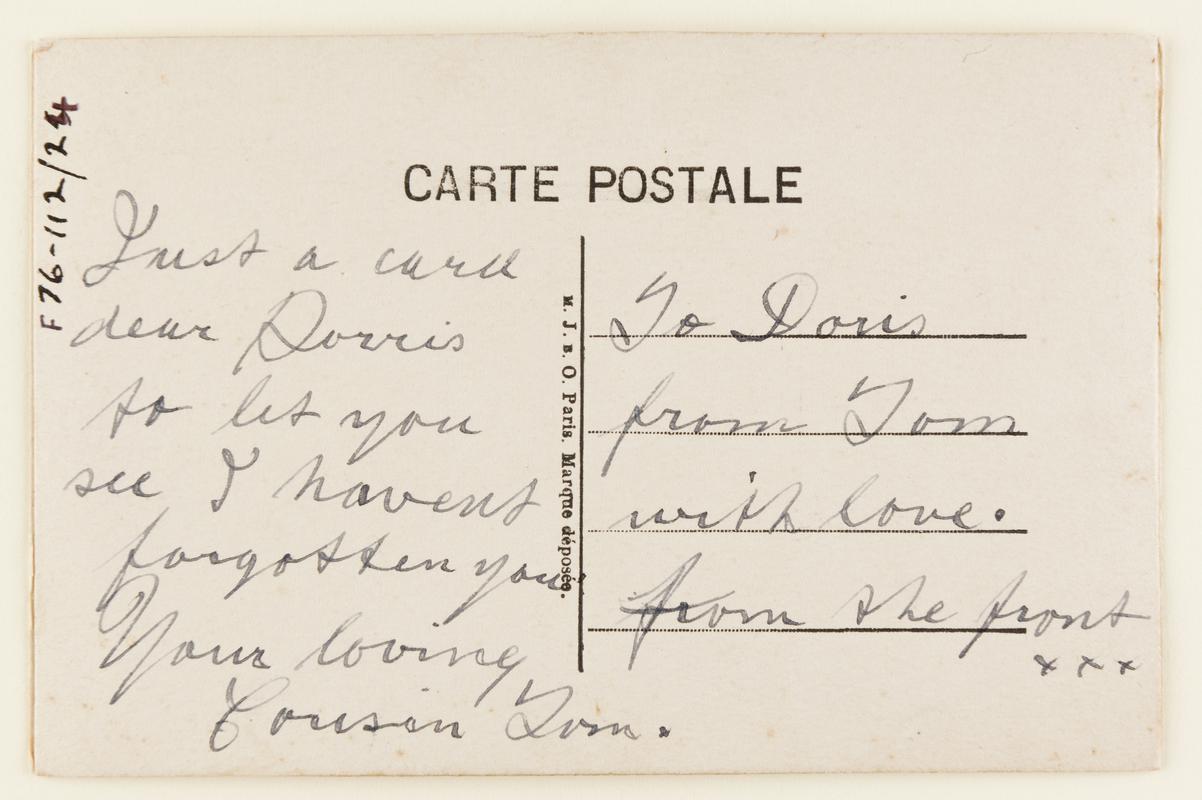 F76-112/24
CARTE POSTALE
Just a card
dear Dorris
to let you
see I havent
forgotten you.
Your loving
Cousin Tom.
M. J. B. O. Paris. Marque déposée.
To Doris
from Tom
with love.
from the front
x x x